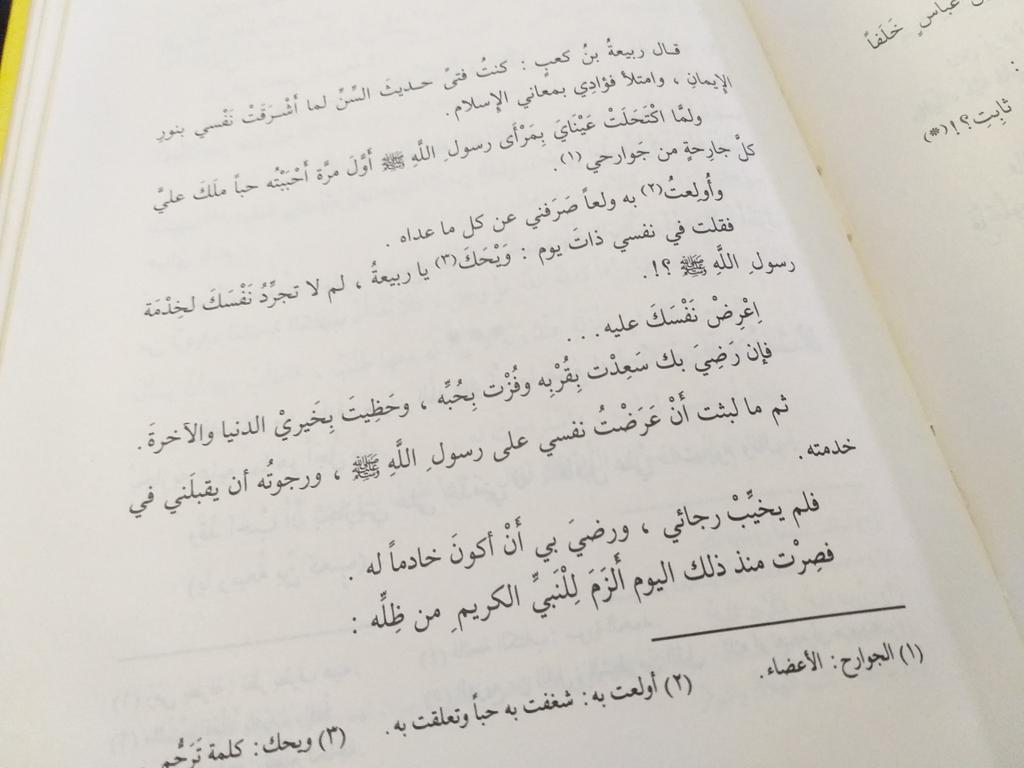 ن عباس ٍ خَلَفاً
ثابِتِ؟!(*)
قال ربيعةُ بنُ كعبٍ : كنتُ فتىً حديثَ السِّنِّ لما أَشْرَقَتْ نَفْسي بنورِ
الإِيمانِ ، وامتلأ فؤادِي بمعاني الإِسلام .
ولمَّا اكْتَحَلَتْ عَيْنَايَ بِمَرْأَى رسول ِ اللَّهِ ﷺ أَوَّلَ مرَّة أَحْبَبْتُه حباً ملَكَ عليَّ
كلَّ جارِحةٍ من جَوارحي (١) .
وأُولِعتُ(٢) به ولعاً صَرَفني عن كل ما عداه .
فقلت في نفسي ذاتَ يوم : وَيْحَكَ(٣) يا ربيعةُ ، لم لا تجرِّدُ نَفْسَكَ لخِدْمَة
رسول ِ اللَّهِ ﷺ ؟!.
اِعْرِضْ نَفْسَكَ عليه . . .
فإن رَضِيَ بك سَعِدْت بِقُرْبِه وفُزْت بِحُبِّه ، وحَظِيتَ بِخَيريْ الدنيا والآخرةَ .
ثم ما لبثت أَنْ عَرَضْتُ نفسي على رسول ِ اللَّهِ ﷺ ، ورجوتُه أن يقبلَني في
خدمته .
فلم يخيِّبْ رجائي ، ورضيَ بي أَنْ أكونَ خادماً له .
فصِرْت منذ ذلك اليوم أَلزَمَ لِلْنبيِّ الكريم ِ من ظِلِّه :
(١) الجوارح : الأعضاء .
(٢) أولعت به : شغفت به حباً وتعلقت به .
(٣) ويحك : كلمة تَرَحُّم